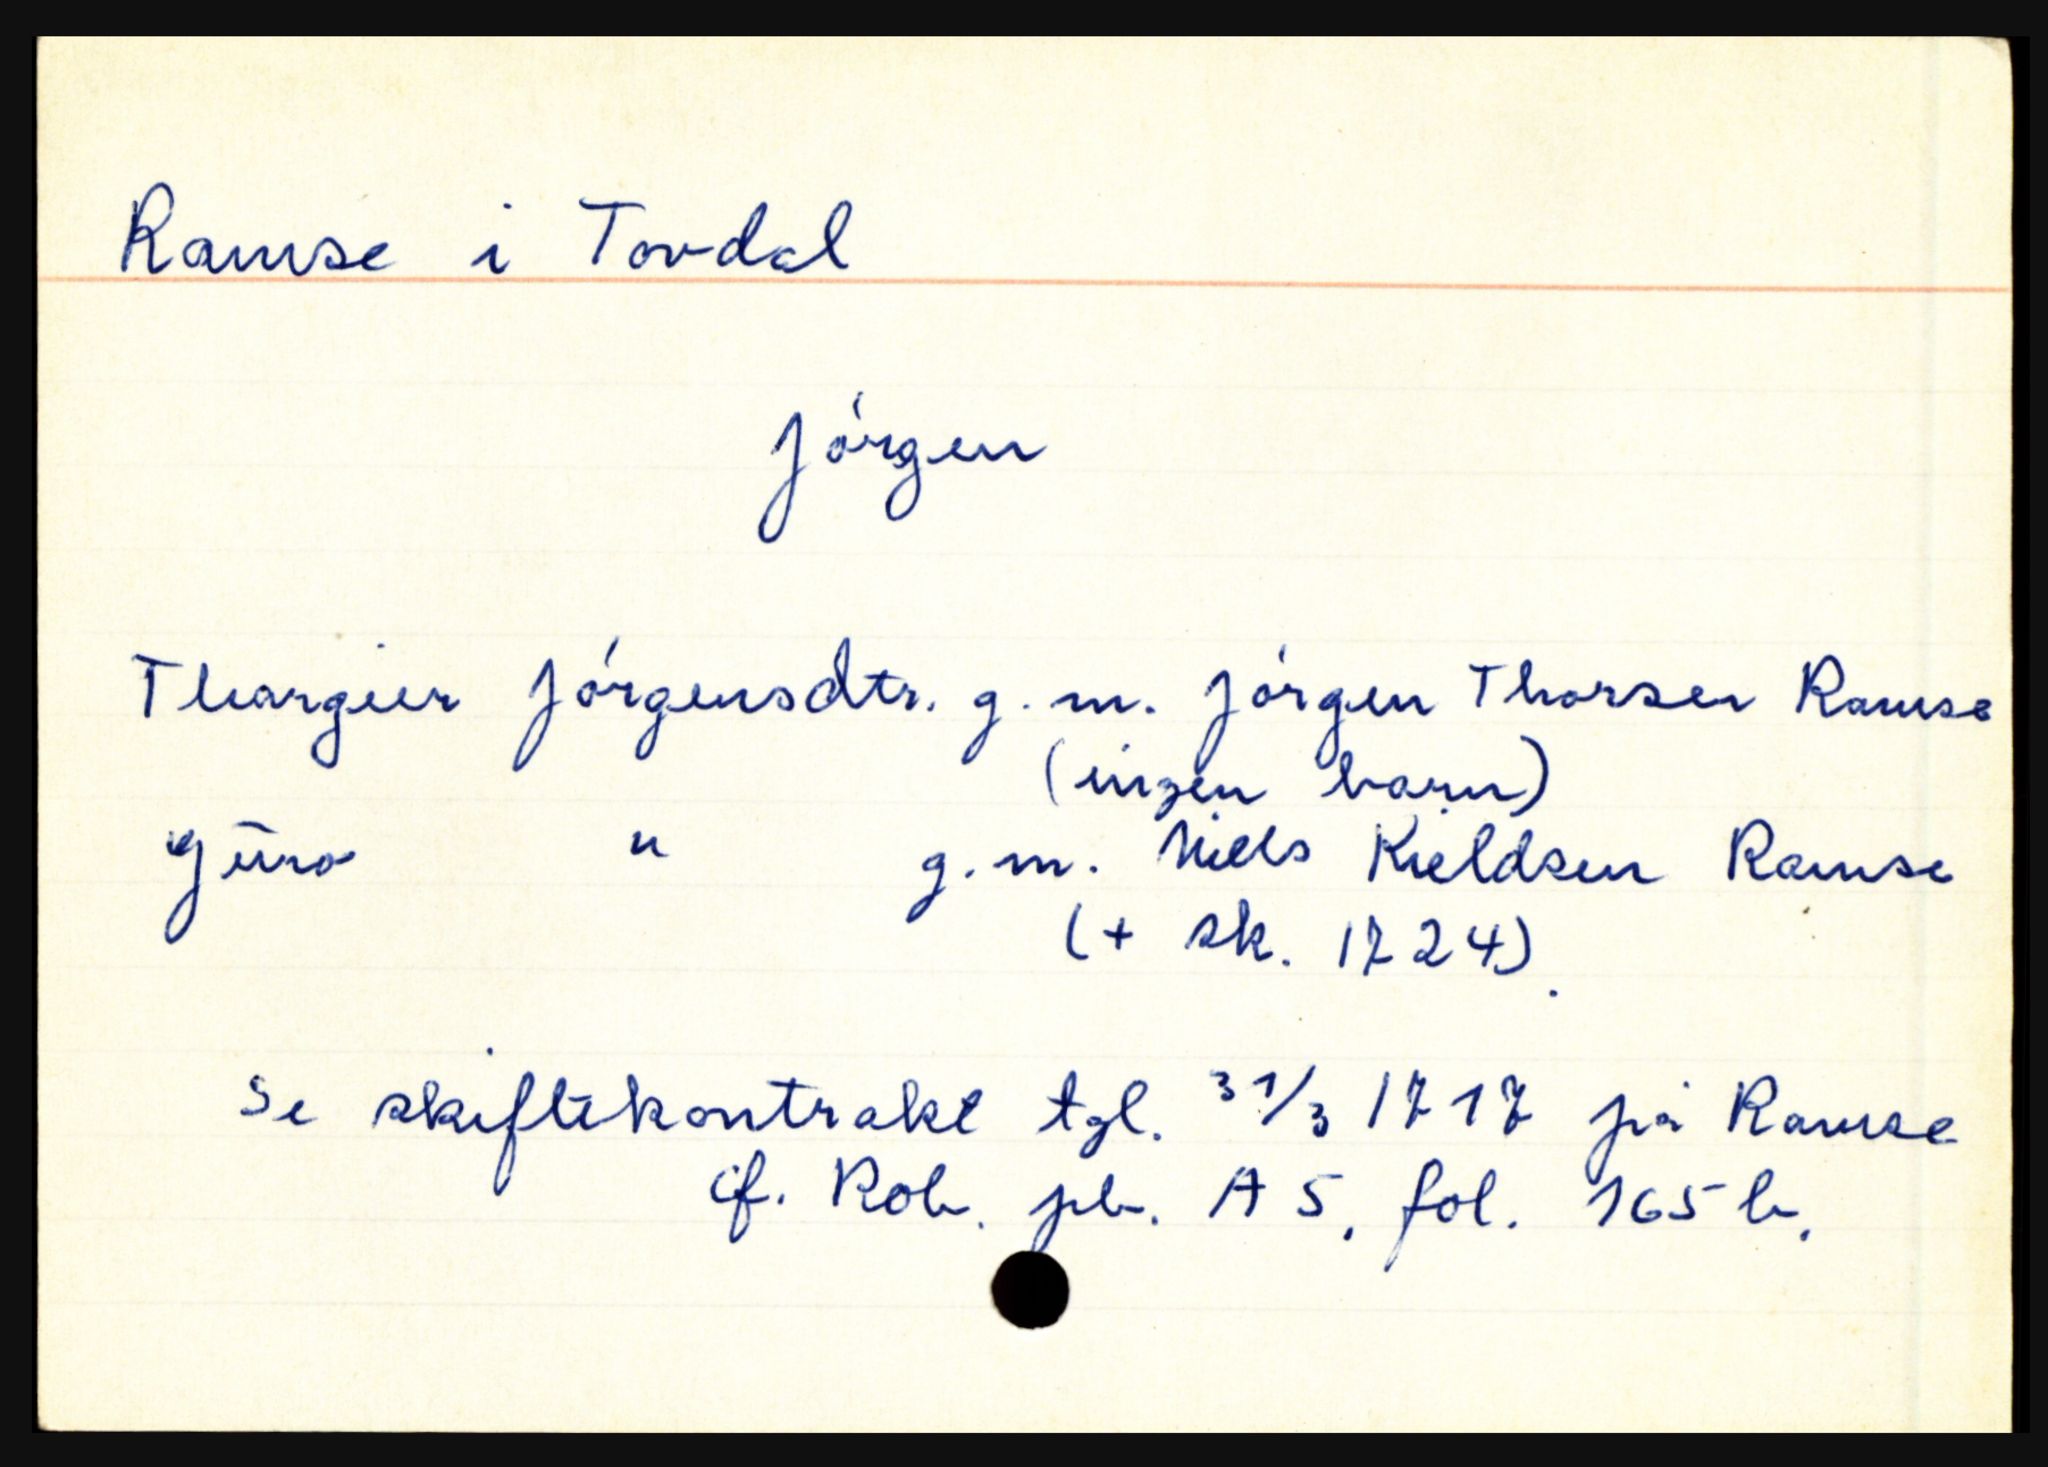 Ramse i Tovdal
Jørgen
Thorgier Jørgensdtr. g. m. Jørgen Thorsen Ramse
(ingen barn)
Gūro " g. m. Niels Kieldsen Ramse
(+ sk. 1724).
Se skiftekontrakt tgl. 31/3 1717 på Ramse
cf. Rob. pb. A 5, fol. 165 b.